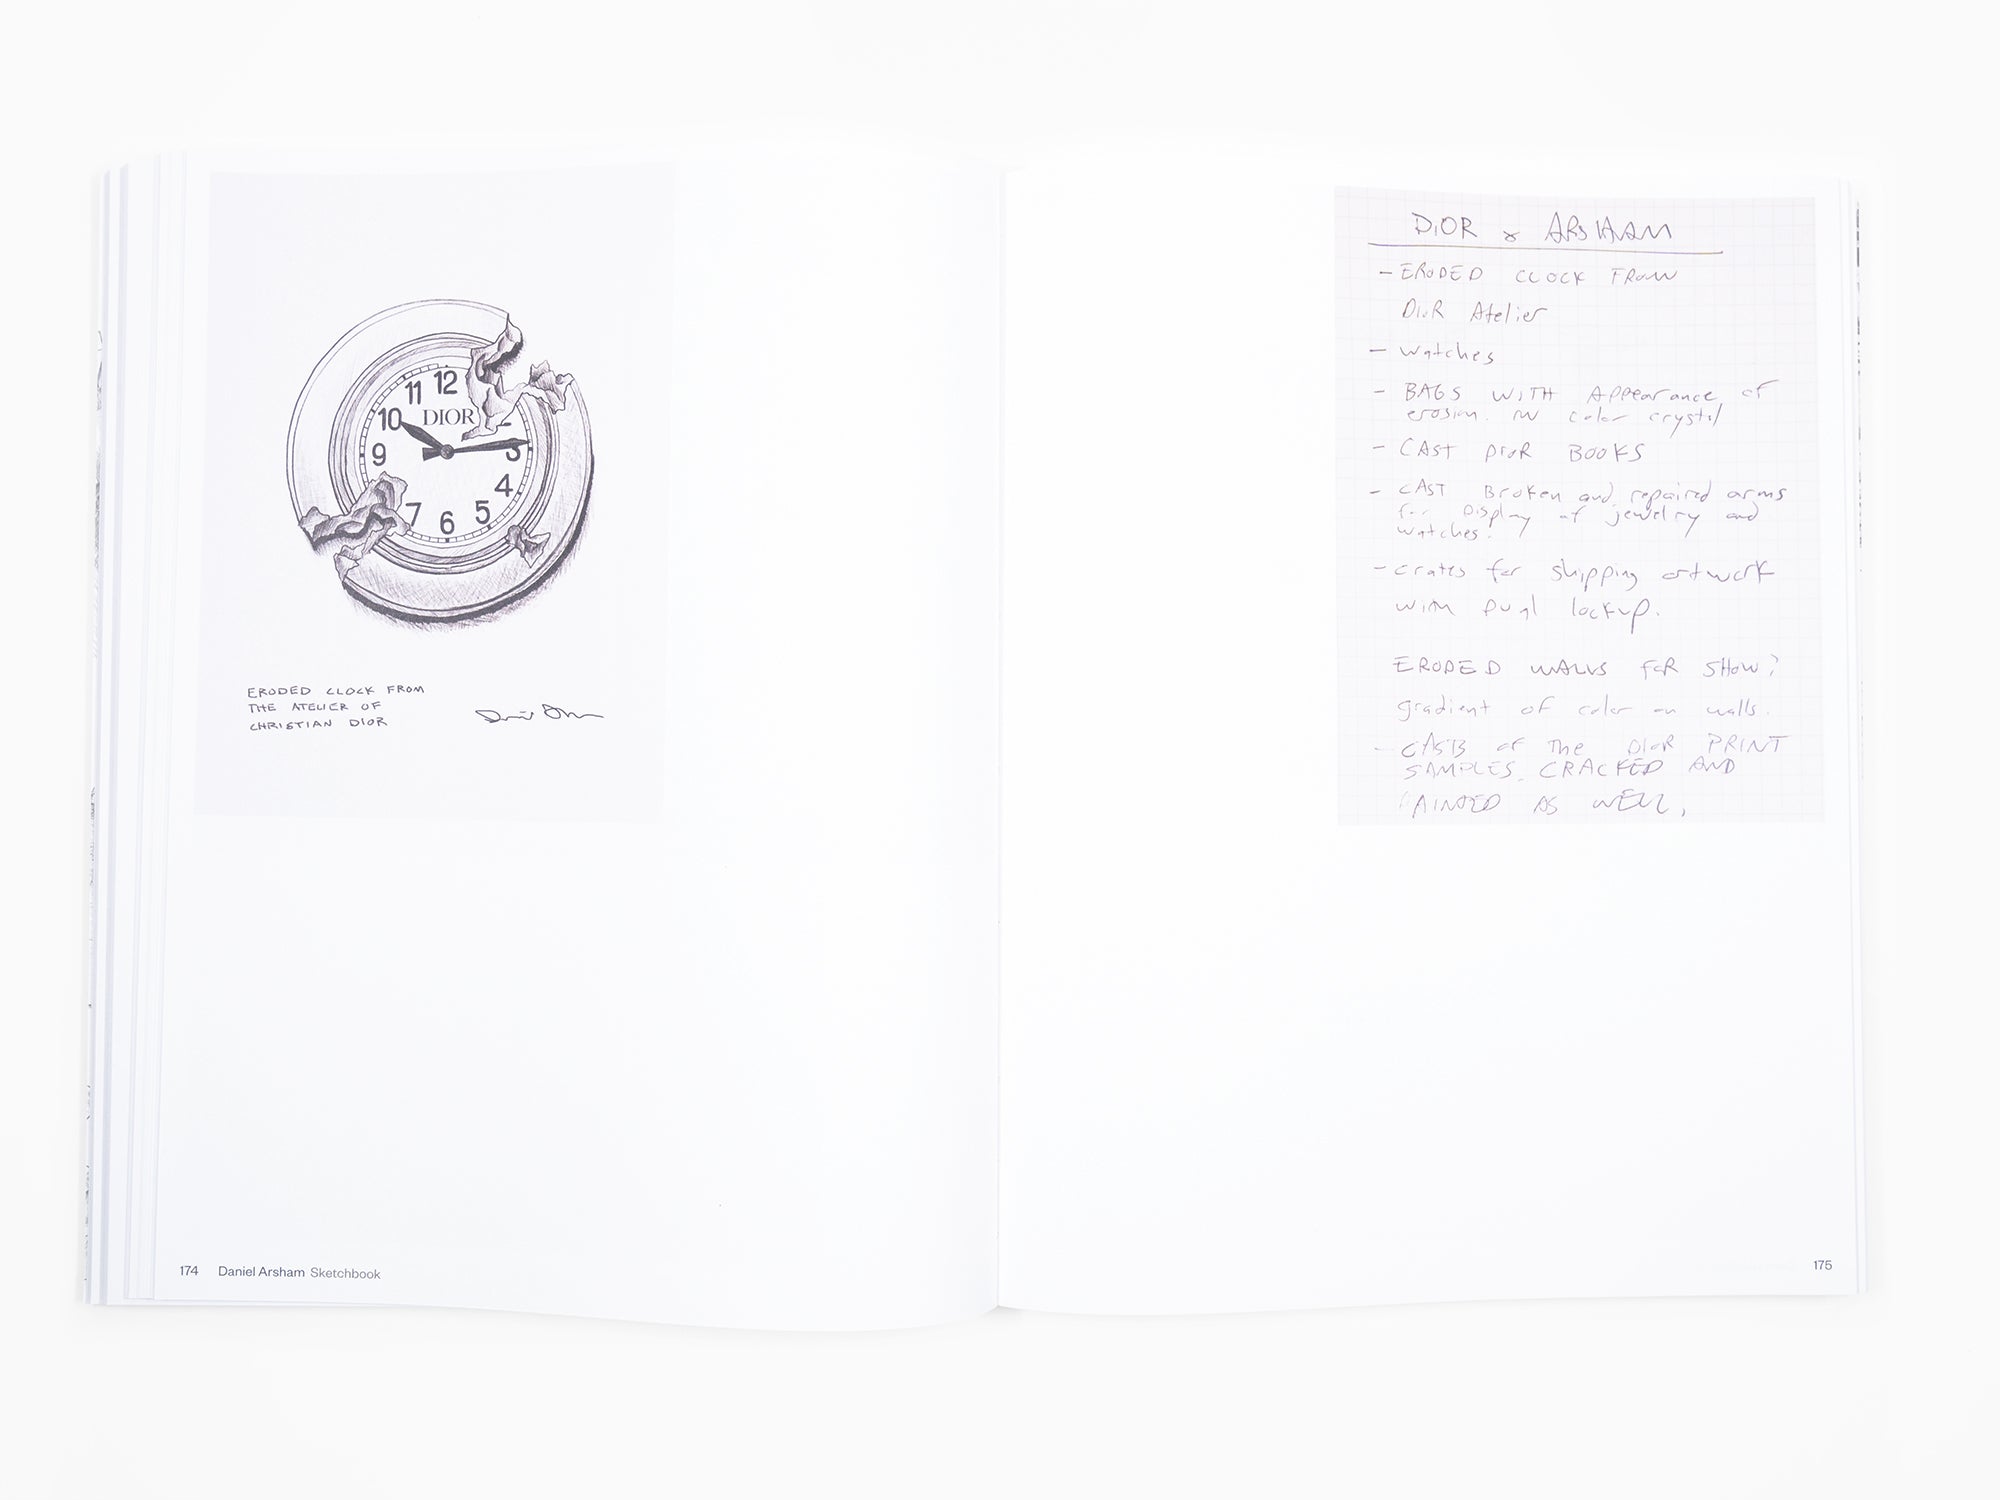 11 12
10 DIOR
9 3
4
7 6 5
ERODED CLOCK FROM
THE ATELIER OF
CHRISTIAN DIOR
174 Daniel Arsham Sketchbook
DIOR x ARSHAM
- ERODED CLOCK FROM
DIOR Atelier
- watches
- BAGS WITH Appearance of
erosion. IN color crystal
- CAST DIOR BOOKS
- CAST Broken and repaired arms
for Display of jewelry and
watches.
- crates for shipping artwork
with dual lockup.
ERODED WALLS FOR SHOW?
gradient of color on walls.
- CASTS of The DIOR PRINT
SAMPLES. CRACKED AND
PAINTED AS WELL,
175